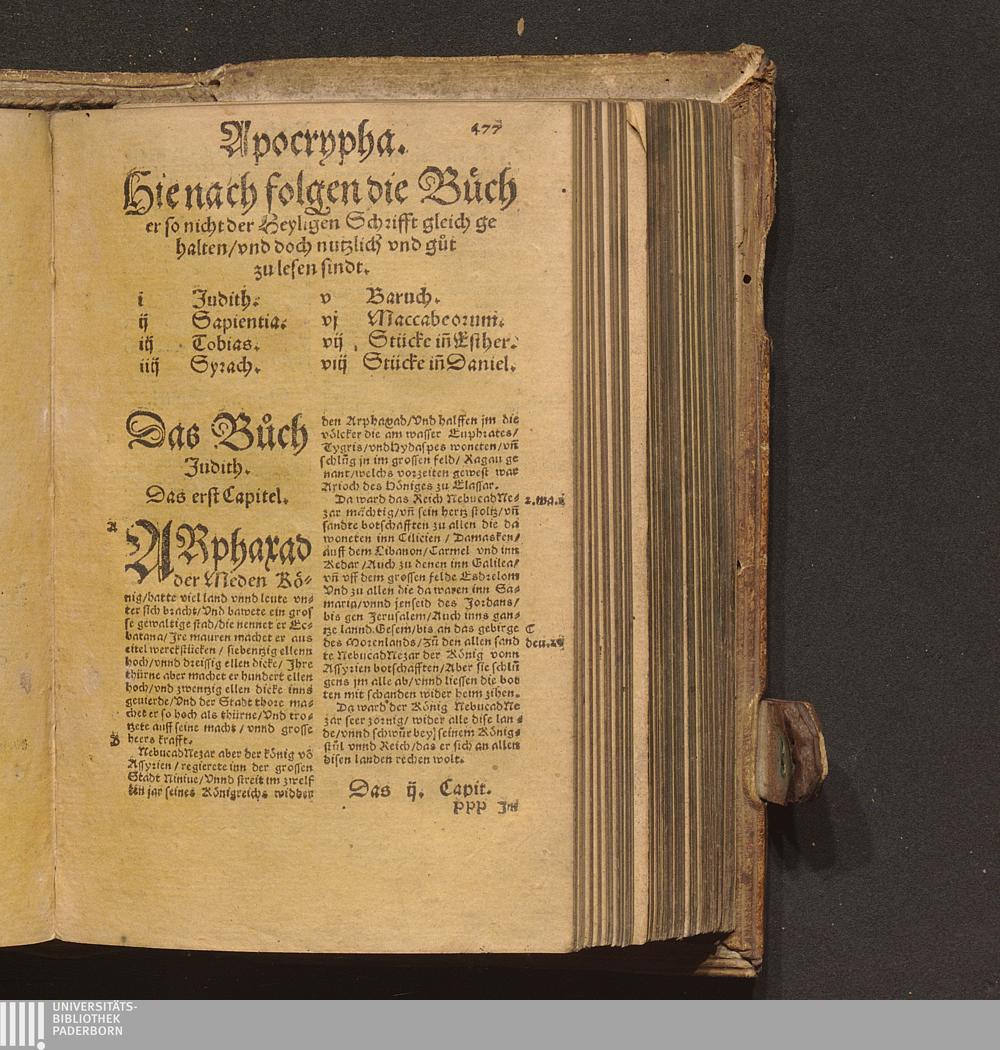 Apocrypha. 477
Hienach folgen die Bůch
er so nicht der Heyligen Schrifft gleich ge
halten/vnd doch nutzlich vnd gůt
zu lesen sindt.
i Judith. v Baruch.
ij Sapientia. vj Maccabeorum.
iij Tobias. vij Stücke iñ Esther.
iiij Syrach. viij Stücke iñ Daniel.
Das Bůch
Judith.
Das erst Capitel.
A
ARphaxad
der Meden Kö-
nig/hatte viel land vnnd leute vn-
ter sich bracht/Vnd bawete ein gros
se gewaltige stad/die nennet er Ec-
batana/Jre mauren machet er aus
eitel werckstücken/siebentzig ellenn
hoch/vnnd dreissig ellen dicke/Jhre
thürne aber machet er hundert ellen
hoch/vnd zwentzig ellen dicke inns
geuierde/Vnd der Stadt thore ma-
chet er so hoch als thürne/Vnd tro-
tzete auff seine macht/vnnd grosse
B heers krafft.
NebucadNezar aber der könig vō
Assyrien/regierete inn der grossen
Stadt Niniue/Vnnd streit im zwelf
ten jar seines Königreichs widder
den Arphaxad/Vnd halffen jm die
völcker die am wasser Euphrates/
Tygris/vnd Hydaspes woneten/vñ
schlůg jn im grossen feld/Ragau ge
nant/welchs vorzeiten gewest war
Arioch des Königes zu Elassar.
Da ward das Reich NebucadNe-
zar mächtig/vñ sein hertz stoltz/vñ
sandte botschafften zu allen die da
woneten inn Cilicien/Damasken/
auff dem Libanon/Carmel vnd inn
Kedar/Auch zu denen inn Galilea/
vñ vff dem grossen felde Esdrelom
Vnd zu allen die da waren inn Sa-
maria/vnnd jenseid des Jordans/
bis gen Jerusalem/Auch inns gan-
tze lannd Gesem/bis an das gebirge C
des Morenlands/Zů den allen sand
te NebucadNezar der König vonn
Assyrien botschafften/Aber sie schlů
gens jm alle ab/vnnd liessen die bot
ten mit schanden wider heim zihen.
Da ward der König NebucadNe
zar seer zörnig/wider alle dise lan-
de/vnnd schwůr bey seinem König-
stůl vnnd Reich/das er sich an allen
disen landen rechen wolt.
Das ij. Capit.
ppp
UNIVERSITÄTS-
BIBLIOTHEK
PADERBORN